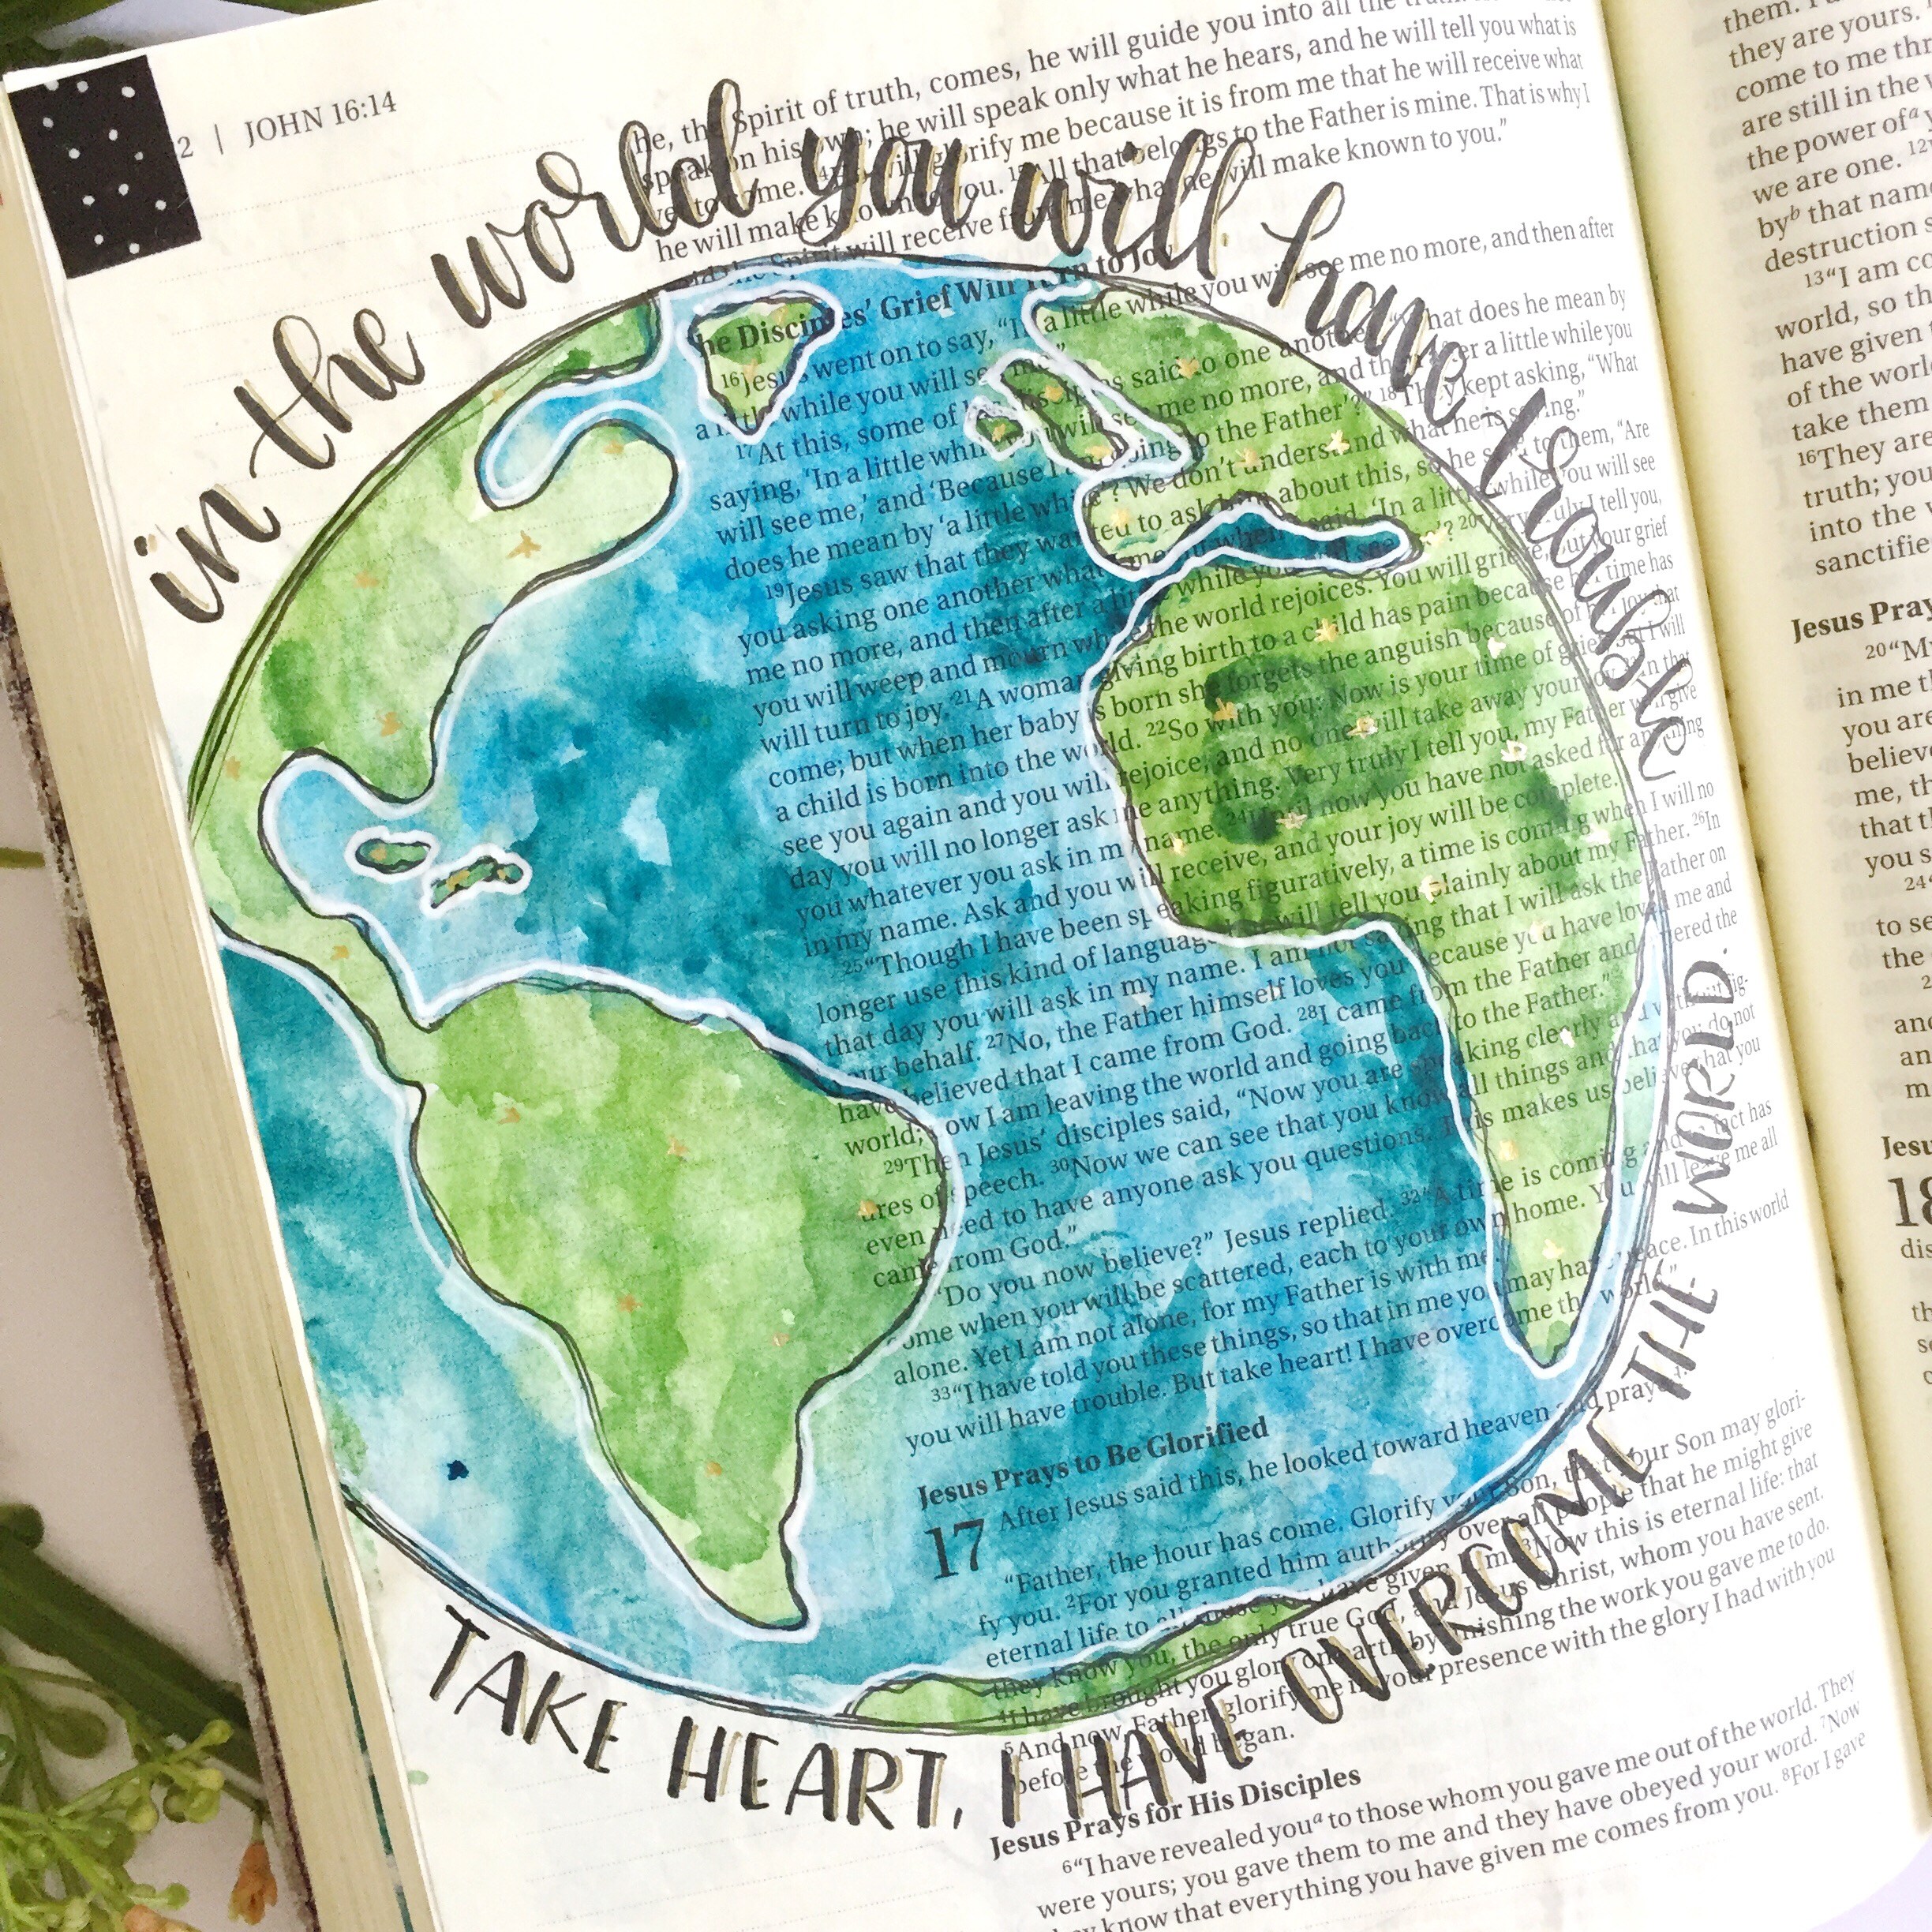 2 | JOHN 16:14
in the world you will have trouble
TAKE HEART, I HAVE OVERCOME THE WORLD.
he, the Spirit of truth, comes, he will guide you into all the truth.
speak on his own; he will speak only what he hears, and he will tell you what is
yet to come. 14 He will glorify me because it is from me that he will receive what
he will make known to you. 15 All that belongs to the Father is mine. That is why I
said the Spirit will receive from me what he will make known to you.”
The Disciples’ Grief Will Turn to Joy
16 Jesus went on to say, “In a little while you will see me no more, and then after
a little while you will see me.”
17 At this, some of his disciples said to one another, “What does he mean by
saying, ‘In a little while you will see me no more, and then after a little while you
will see me,’ and ‘Because I am going to the Father’?” 18 They kept asking, “What
does he mean by ‘a little while’? We don’t understand what he is saying.”
19 Jesus saw that they wanted to ask him about this, so he said to them, “Are
you asking one another what I meant when I said, ‘In a little while you will see
me no more, and then after a little while you will see me’? 20 Very truly I tell you,
you will weep and mourn while the world rejoices. You will grieve, but your grief
will turn to joy. 21 A woman giving birth to a child has pain because her time has
come; but when her baby is born she forgets the anguish because of her joy that
a child is born into the world. 22 So with you: Now is your time of grief, but I will
see you again and you will rejoice, and no one will take away your joy. In that
day you will no longer ask me anything. Very truly I tell you, my Father will give
you whatever you ask in my name. 24 Until now you have not asked for anything
in my name. Ask and you will receive, and your joy will be complete.
25 “Though I have been speaking figuratively, a time is coming when I will no
longer use this kind of language but will tell you plainly about my Father. 26 In
that day you will ask in my name. I am not saying that I will ask the Father on
your behalf. 27 No, the Father himself loves you because you have loved me and
have believed that I came from God. 28 I came from the Father and entered the
world; now I am leaving the world and going back to the Father.”
29 Then Jesus’ disciples said, “Now you are speaking clearly and without fig-
ures of speech. 30 Now we can see that you know all things and that you do not
even need to have anyone ask you questions. This makes us believe that you
came from God.”
“Do you now believe?” Jesus replied. 32 “A time is coming and in fact has
come when you will be scattered, each to your own home. You will leave me all
alone. Yet I am not alone, for my Father is with me.
33 “I have told you these things, so that in me you may have peace. In this world
you will have trouble. But take heart! I have overcome the world.”
Jesus Prays to Be Glorified
17 After Jesus said this, he looked toward heaven and prayed:
“Father, the hour has come. Glorify your Son, that your Son may glori-
fy you. 2 For you granted him authority over all people that he might give
eternal life to all those you have given him. 3 Now this is eternal life: that
they know you, the only true God, and Jesus Christ, whom you have sent.
4 I have brought you glory on earth by finishing the work you gave me to do.
5 And now, Father, glorify me in your presence with the glory I had with you
before the world began.
Jesus Prays for His Disciples
6 “I have revealed you a to those whom you gave me out of the world. They
were yours; you gave them to me and they have obeyed your word. 7 Now
they know that everything you have given me comes from you. 8 For I gave
them.
they are yours.
come to me
are still in the
the power of a
we are one. 12
by b that name
destruction
13 “I am
world, so
have given
of the
take them
16 They are
truth;
into the
Jesus
20 “My
in me
you are
me,
that
24
to
the
Jesus
18